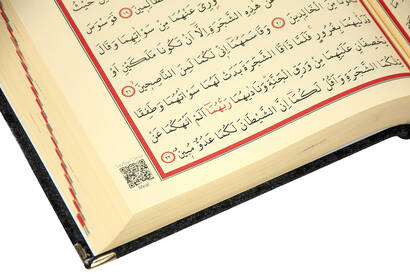 حَيْثُ
فَوَسْوَسَ
وُرِيَ عَنْهُمَا مِنْ سَوْاٰتِهِمَا وَقَالَ
عَنْ هٰذِهِ الشَّجَرَةِ اِلَّٓا اَنْ تَكُونَا مَلَكَيْنِ اَوْ
مِنَ الْخَالِدِينَ ٢٠ وَقَاسَمَهُمَٓا اِنِّي لَكُمَا لَمِنَ النَّاصِحِينَ ٢١
فَدَلّٰيهُمَا بِغُرُورٍ فَلَمَّا ذَاقَا الشَّجَرَةَ بَدَتْ لَهُمَا سَوْاٰتُهُمَا وَطَفِقَا
يَخْصِفَانِ عَلَيْهِمَا مِنْ وَرَقِ الْجَنَّةِ وَنَادٰيهُمَا رَبُّهُمَٓا اَلَمْ اَنْهَكُمَا عَنْ
تِلْكُمَا الشَّجَرَةِ وَاَقُلْ لَكُمَٓا اِنَّ الشَّيْطَانَ لَكُمَا عَدُوٌّ مُبِينٌ ٢٢